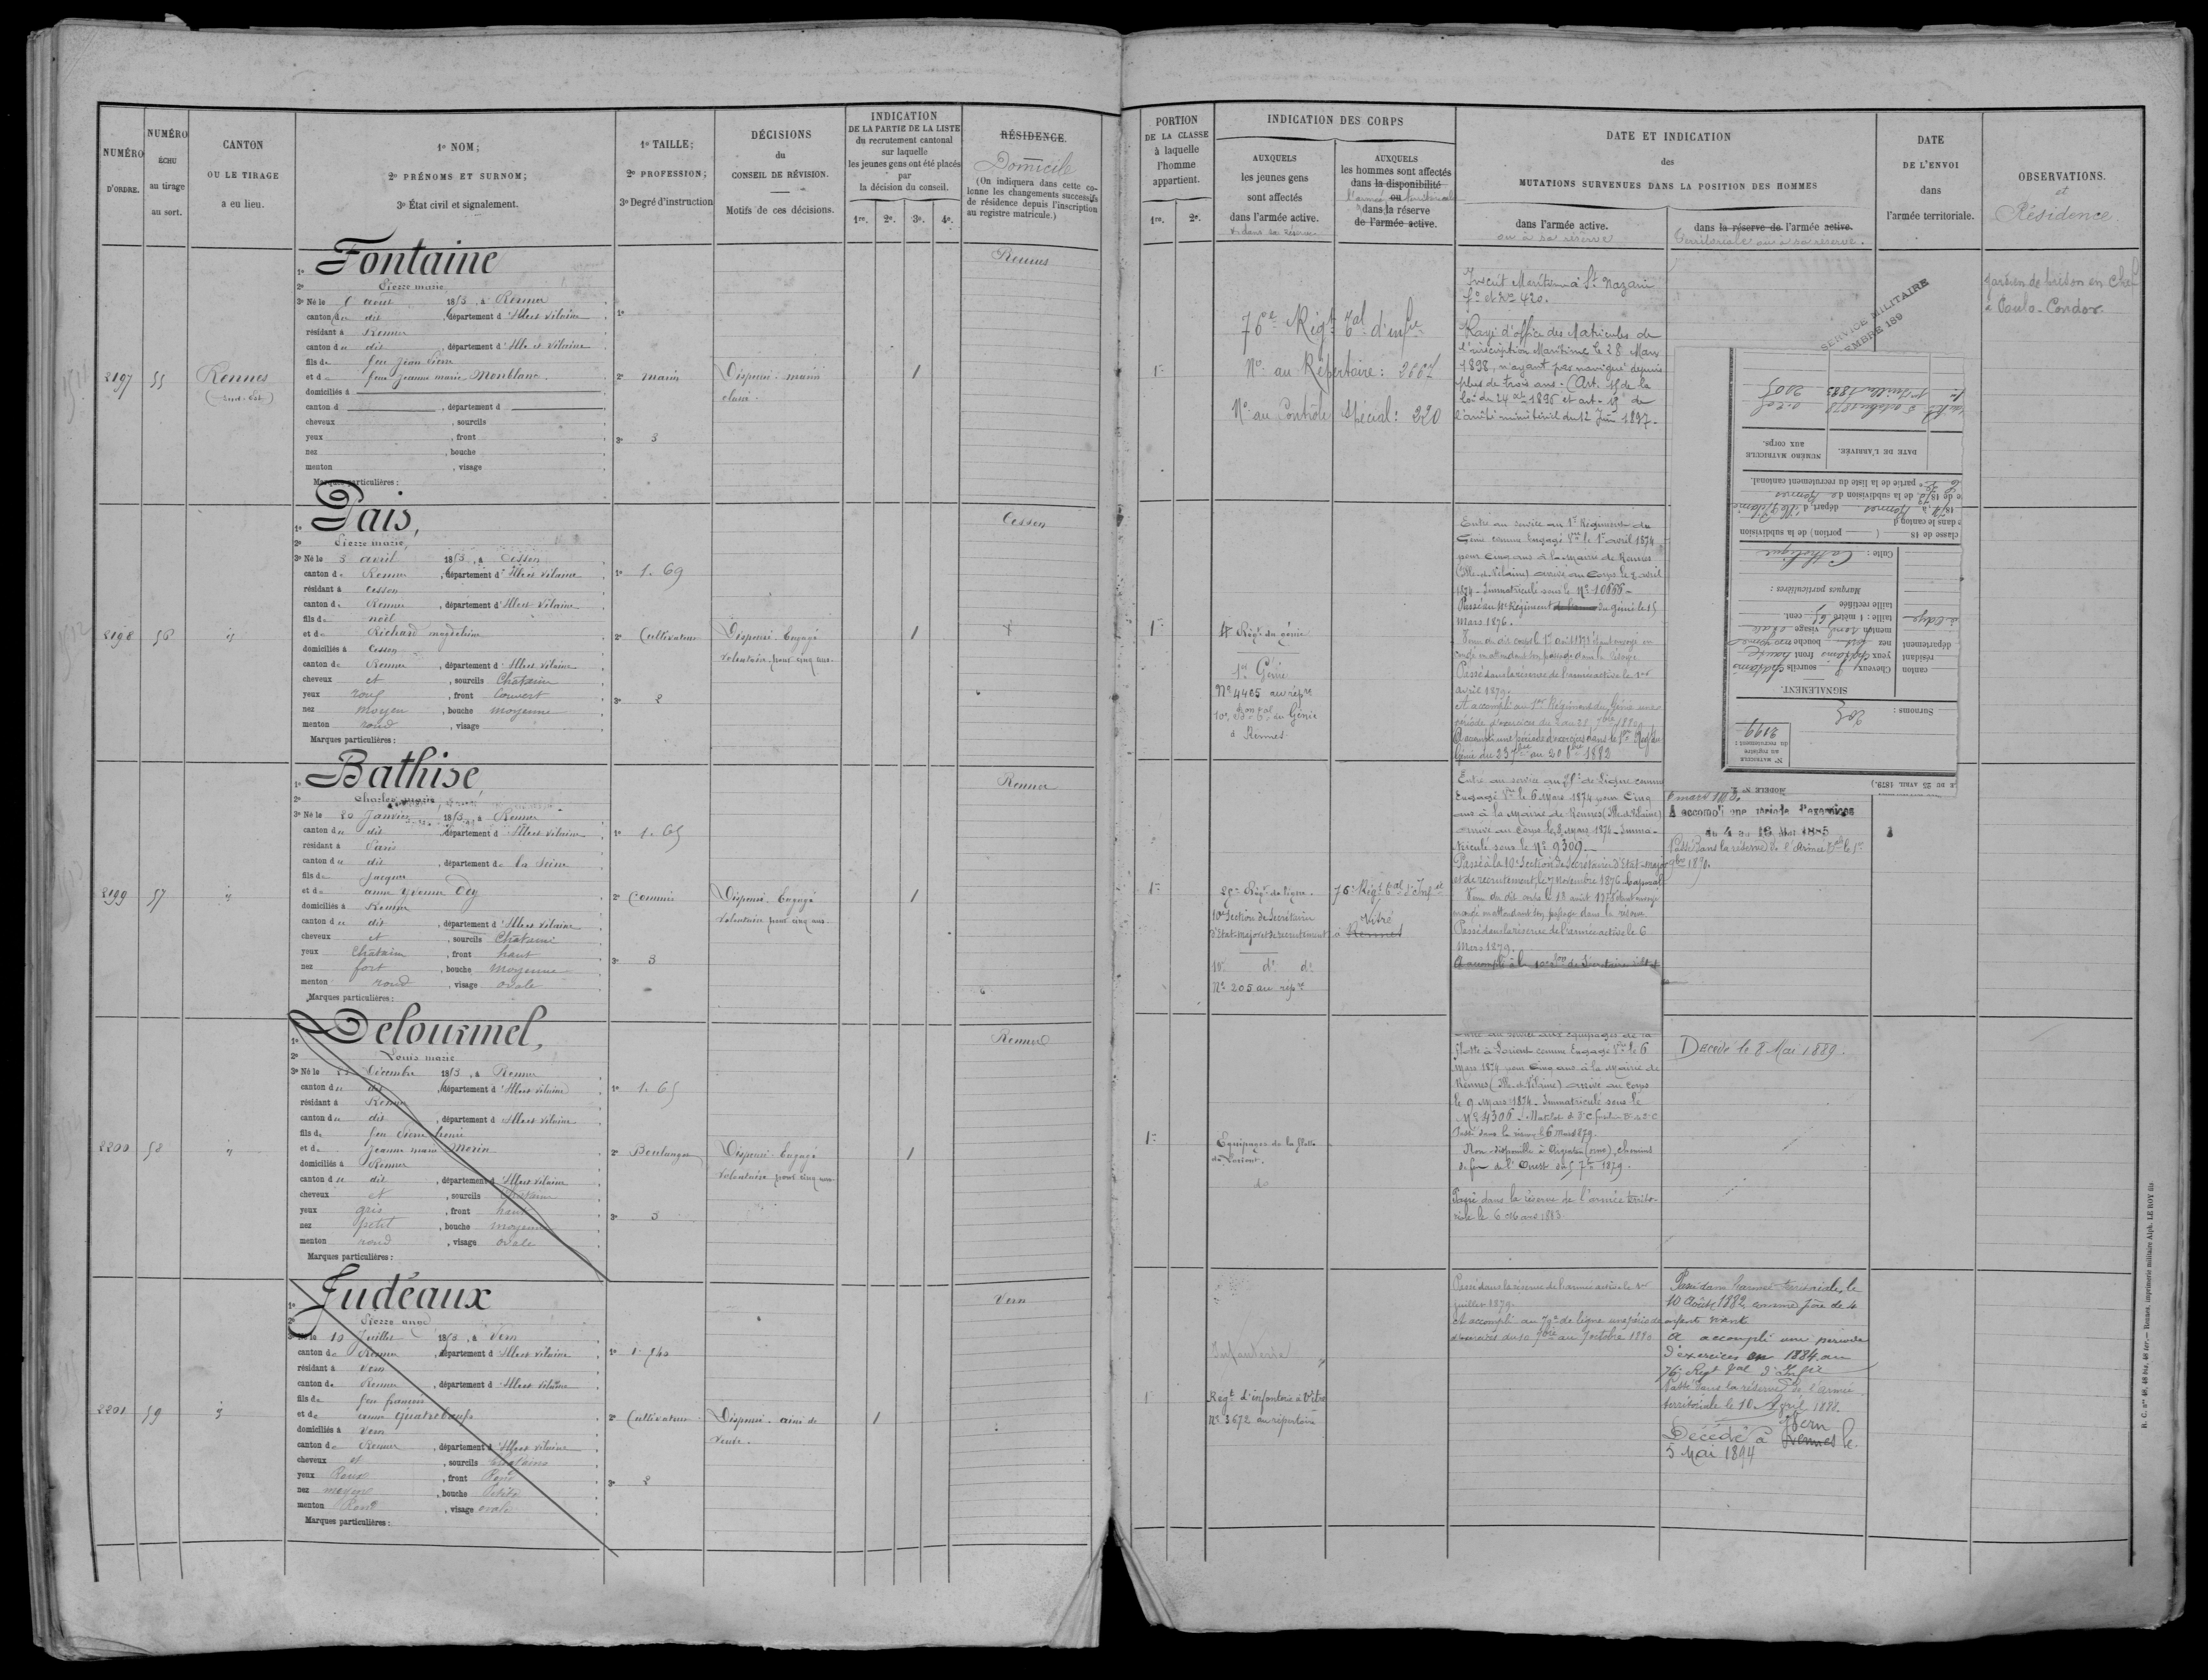 NUMÉRO
D'ORDRE.
NUMÉRO
ÉCHU
au tirage
au sort.
CANTON
OU LE TIRAGE
a eu lieu.
1º NOM;
2º PRÉNOMS ET SURNOM;
3º État civil et signalement.
1º TAILLE;
2º PROFESSION;
3º Degré d'instruction
DÉCISIONS
du
CONSEIL DE RÉVISION.
Motifs de ces décisions.
INDICATION
DE LA PARTIE DE LA LISTE
du recrutement cantonal
sur laquelle
les jeunes gens ont été placés
par
la décision du conseil.
1re. 2e. 3e. 4e.
RÉSIDENCE.
Domicile
(On indiquera dans cette co-
lonne les changements successifs
de résidence depuis l'inscription
au registre matricule.)
2197
55
Rennes
(sud-est)
1º Fontaine
2º Pierre marie
3º Né le août 1853, à Rennes
canton du dit, département d'Ille et Vilaine
résidant à Rennes
canton du dit, département d'Ille et Vilaine
fils de feu Jean Pierre
et de feue Jeanne marie Monblanc
domiciliés à
canton d , département d
cheveux , sourcils
yeux , front
nez , bouche
menton , visage
Marques particulières :
1º
2º marin
3º 3
Dispensé : marin
classé.
1
Rennes
2198
56
1º Pais,
2º Pierre marie,
3º Né le 3 avril 1853, à Cesson
canton de Rennes, département d'Ille et Vilaine
résidant à Cesson
canton de Rennes, département d'Ille et Vilaine
fils de noël
et de Richard magdeleine
domiciliés à Cesson
canton de Rennes, département d'Ille et Vilaine
cheveux et, sourcils Châtains
yeux roux, front Couvert
nez moyen, bouche moyenne
menton rond, visage
Marques particulières :
1º 1.69
2º Cultivateur
3º 2
Dispensé. Engagé
volontaire pour cinq ans.
1
Cesson
2199
57
1º Bathise,
2º Charles marie,
3º Né le 20 Janvier 1853, à Rennes
canton du dit, département d'Ille et Vilaine
résidant à Paris
canton du dit, département de la Seine
fils de Jacques
et de anne Yvonne
domiciliés à Rennes
canton du dit, département d'Ille et Vilaine
cheveux et, sourcils Châtains
yeux Châtains, front haut
nez fort, bouche moyenne
menton rond, visage ovale
Marques particulières :
1º 1.65
2º Commis
3º 3
Dispensé. Engagé
volontaire pour cinq ans.
1
Rennes
2200
58
1º Delourmel,
2º Louis marie
3º Né le Décembre 1853, à Rennes
canton du dit, département d'Ille et Vilaine
résidant à Rennes
canton du dit, département d'Ille et Vilaine
fils de feu Pierre
et de Jeanne marie Morin
domiciliés à Rennes
canton du dit, département d'Ille et Vilaine
cheveux et, sourcils Châtains
yeux gris, front haut
nez petit, bouche moyenne
menton rond, visage ovale
Marques particulières :
1º 1.65
2º Boulanger
3º 3
Dispensé. Engagé
volontaire pour cinq ans
1
Rennes
2201
59
1º Judéaux
2º Pierre ange
3º Né le 10 Juillet 1853, à Vern
canton de Rennes, département d'Ille et Vilaine
résidant à Vern
canton de Rennes, département d'Ille et Vilaine
fils de feu françois
et de anne Quatreboeufs
domiciliés à Vern
canton de Rennes, département d'Ille et Vilaine
cheveux et, sourcils Châtains
yeux Roux, front Rond
nez moyen, bouche Petite
menton Rond, visage ovale
Marques particulières :
1º 1.540
2º Cultivateur
3º 2
Dispensé. ainé de
veuve.
1
Vern
PORTION
DE LA CLASSE
à laquelle
l'homme
appartient.
1re. 2e.
INDICATION DES CORPS
AUXQUELS
les jeunes gens
sont affectés
dans l'armée active.
et dans sa réserve
AUXQUELS
les hommes sont affectés
dans la disponibilité
l'armée ou territoriale
dans la réserve
de l'armée active.
DATE ET INDICATION
des
MUTATIONS SURVENUES DANS LA POSITION DES HOMMES
dans l'armée active.
ou à sa réserve
dans la réserve de l'armée active.
territoriale ou à sa réserve.
DATE
DE L'ENVOI
dans
l'armée territoriale.
OBSERVATIONS.
et
Résidence
1re
76e Régt Tal d'infie
No au Répertoire : 2007
No au Contrôle Spécial : 220
Inscrit Maritime à St Nazaire
fo et No 420.
Rayé d'office des Matricules de
l'inscription Maritime le 28 Mars
1898, n'ayant pas navigué depuis
plus de trois ans - (Art. de la
loi du 24 1896 et art. de
l'arrêté ministériel du 12 Juin 1897.
gardien de prison en Chef
à Poulo-Condor
SERVICE MILITAIRE
EMBRE 189
1re
4e Régt du génie
1er Génie
No 4405 au répre
10e Bon Tal du Génie
à Rennes
Entré au service au 1er Régiment du
Génie comme Engagé Vre le 1er avril 1874
pour cinq ans à la Mairie de Rennes
(Ille-et-Vilaine) arrivé au Corps le 7 avril
1874 - Immatriculé sous le No 10606 -
Passé au 4e Régiment du génie le 15
Mars 1876.
congé en attendant son passage dans la réserve
Passé dans la réserve de l'armée active le 1er
avril 1879.
A accompli au 1er Régiment du Génie une
période d'exercices du 2 au 29 7bre 1880
A accompli une période d'exercices dans le 1er Régt du
Génie du 23 7bre au 20 8bre 1882
1re
25e Régt de ligne.
10e Section de Secrétaires
d'Etat-major et de recrutement
10e do do
No 205 au répre
76e Régt Tal d'Infie
Vitré
à Rennes
Entré au service au de Ligne comme
Engagé Vre le 6 Mars 1874 pour Cinq
ans à la Mairie de Rennes (Ille-et-Vilaine)
arrivé au Corps le 8 Mars 1874 - Imma-
triculé sous le No 9309 -
Passé à la 10e Section de Secrétaires d'Etat-major
et de recrutement le 7 Novembre 1876 Caporal
congé en attendant son passage dans la réserve
Passé dans la réserve de l'armée active le 6
Mars 1879.
A accompli à la 10e Son de Secrétaires d'Etat
A accompli une période d'exercices
du 4 au 16 Mai 1885
Passé dans la réserve de l'Armée Tale le 1er
9bre 1890.
MODÈLE No
LE DU 25 AVRIL 1879.)
No MATRICULE
au registre
du recrutement :
2199
Surnoms :
205
SIGNALEMENT.
Cheveux sourcils châtains
yeux châtains front haut
nez bouche moyenne
menton rond visage ovale
taille : 1 mètre 65 cent.
taille rectifiée
Marques particulières :
canton
résidant
département
Culte : Catholique
classe de 18 ( portion) de la subdivision
dans le canton d
18 , à Rennes départ. d'Ille et Vilaine
de 1873, de la subdivision de Rennes
partie de la liste du recrutement cantonal.
DATE DE L'ARRIVÉE.
NUMÉRO MATRICULE
AUX CORPS.
1er Juillet 1885
2005
1re
Equipages de la flotte
de Lorient.
do
Entré au service aux équipages de la
flotte à Lorient comme Engagé Vre le 6
Mars 1874 pour Cinq ans à la Mairie de
Rennes (Ille-et-Vilaine) arrivé au Corps
le 9 Mars 1874 - Immatriculé sous le
No 4306 - Matelot de 3e C
Passé dans la réserve le 6 Mars 1879.
Non-disponible à Argentan (orne), chemins
de fer de l'Ouest du 5 7bre 1879.
Passé dans la réserve de l'armée territo-
riale le 6 Mars 1883
Décédé le 8 Mai 1889.
1
Infanterie
Régt d'infanterie à Vitré
No 3672 au répertoire
Passé dans la réserve de l'armée active le 1er
juillet 1879.
A accompli au 70e de ligne une période
d'exercices du 10 7bre au 7 octobre 1880
Passé dans l'armée territoriale, le
10 Août 1882 comme père de 4
enfants vivants
A accompli une période
d'exercices en 1884 au
76e Régt Tal d'Infie
Passé dans la réserve de l'armée
territoriale le 10 Avril 1888.
Décédé à Rennes Vern le
5 Mai 1894
R. C. nos 48, 48 bis, 48 ter. — Rennes, imprimerie militaire Alph. LE ROY fils